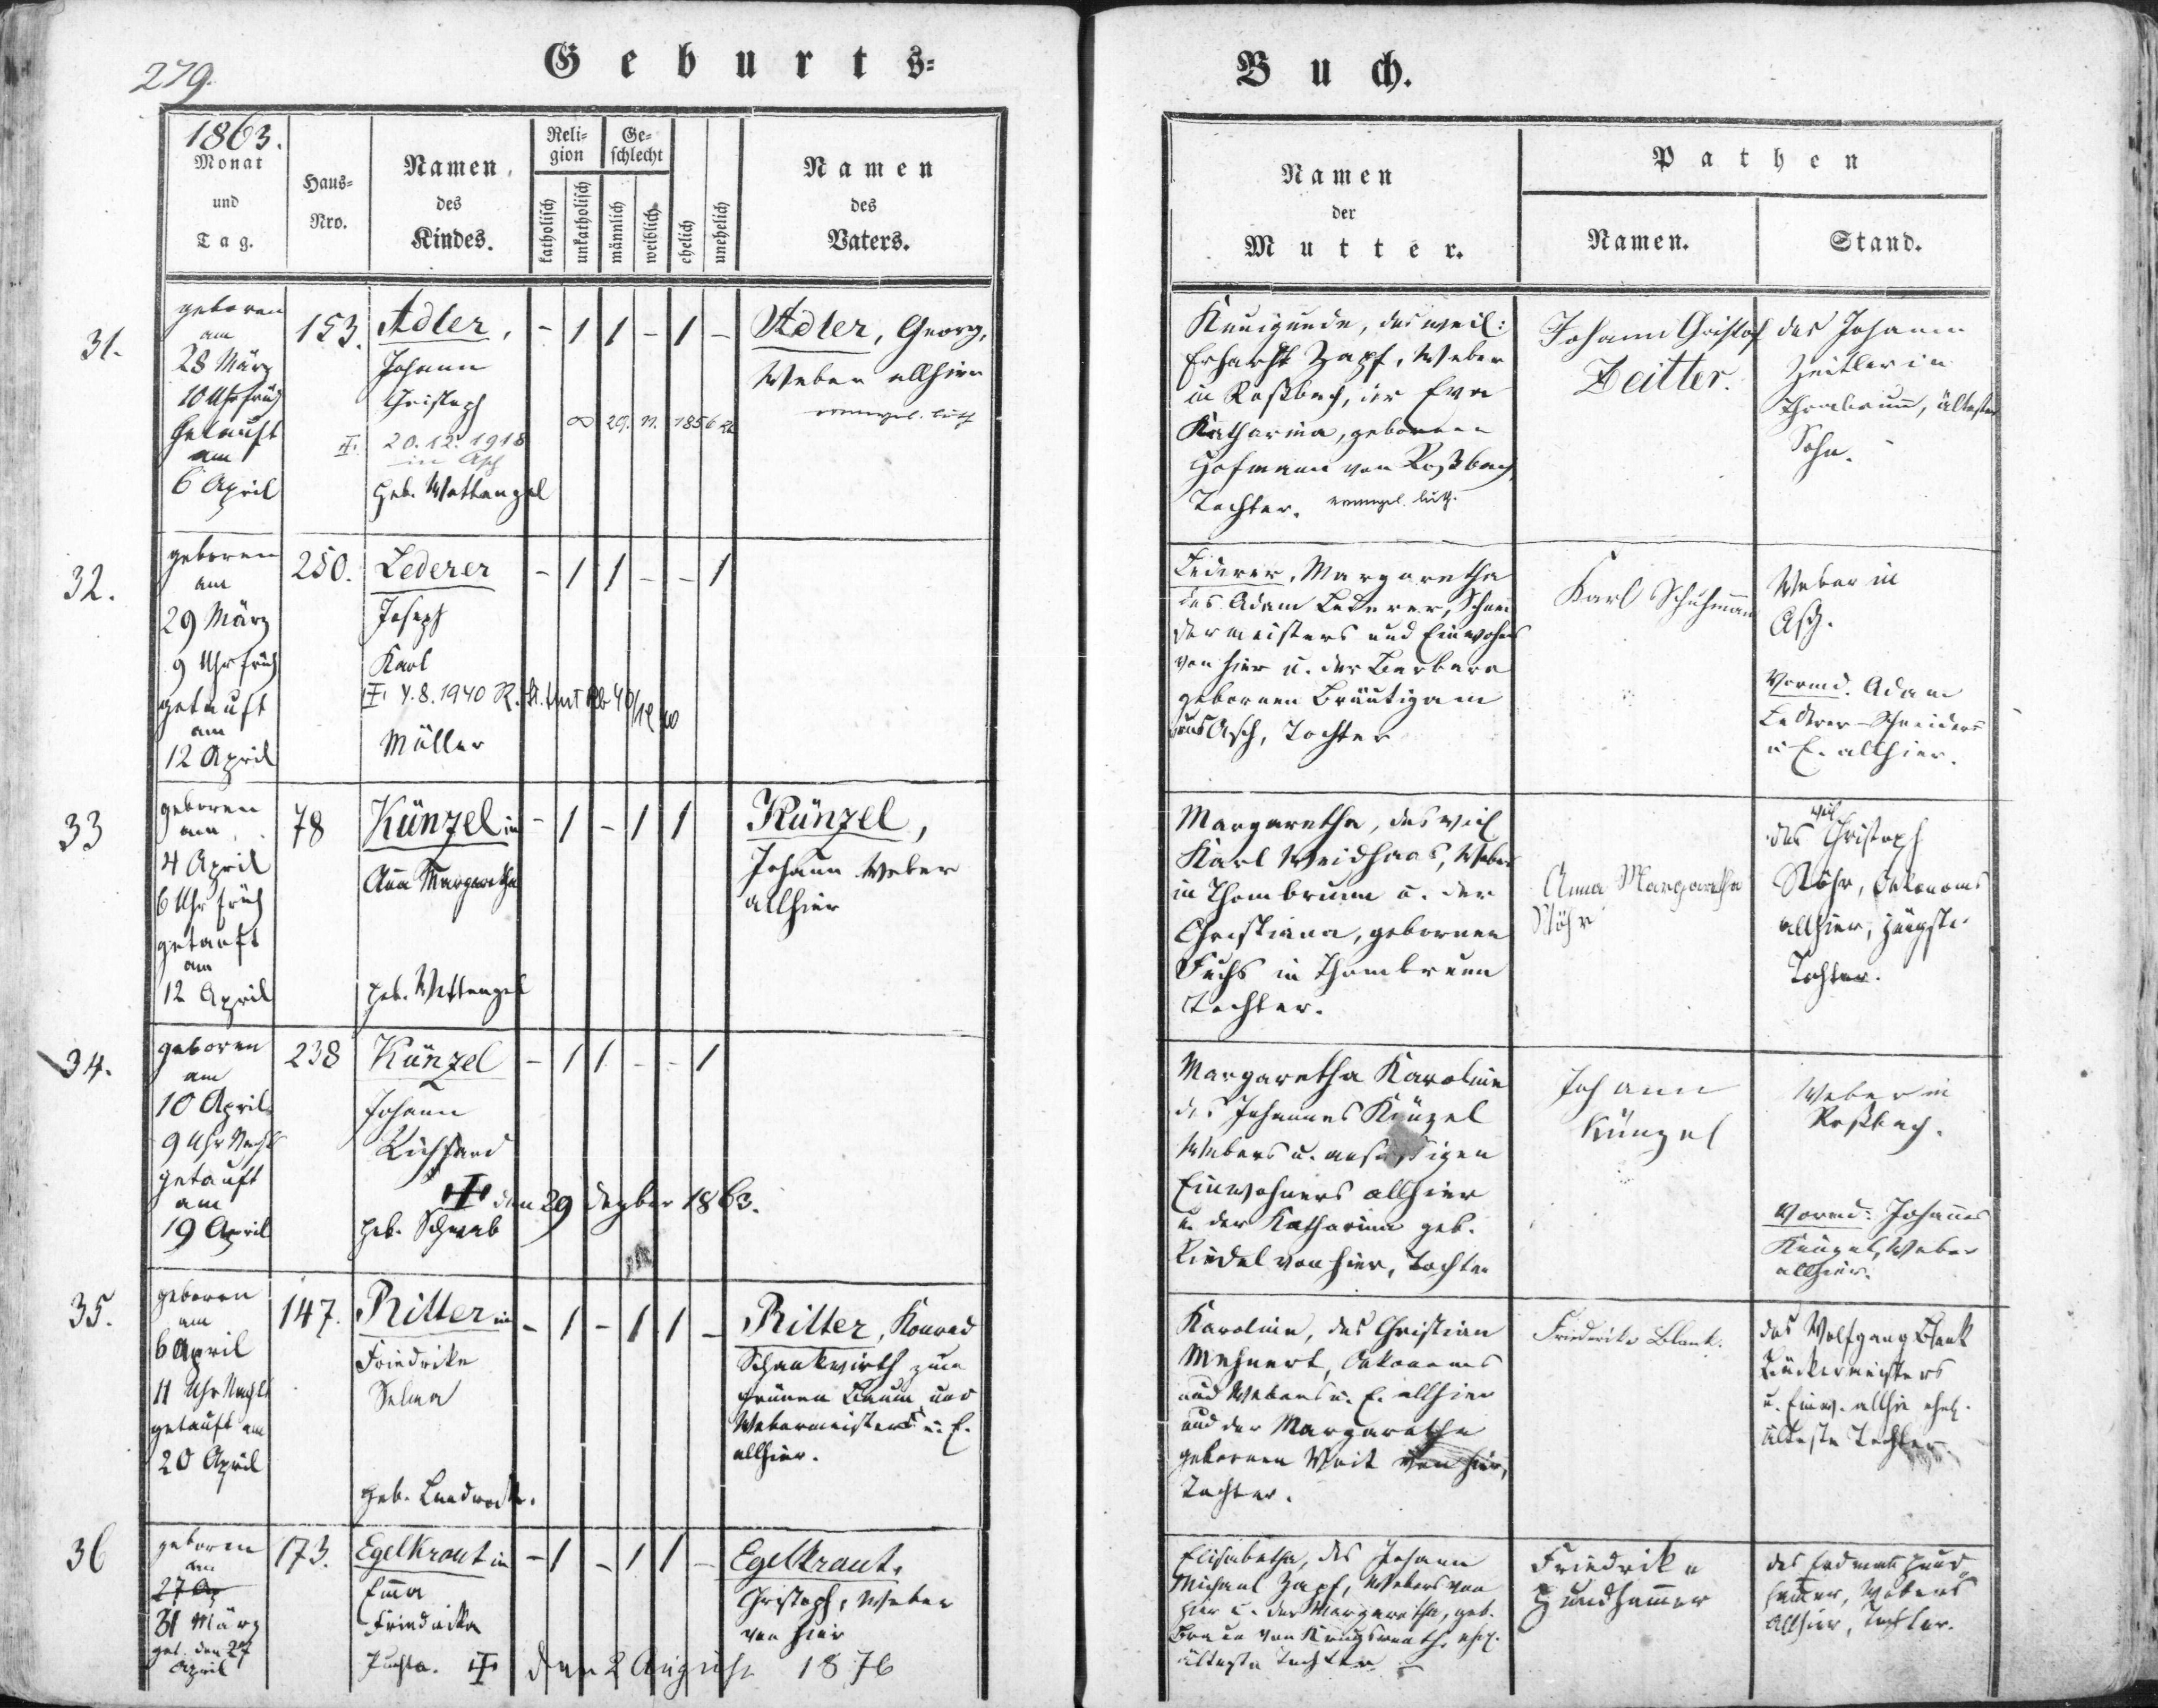 279.
Geburts=
Buch.
1863.
Monat
und
Tag.
Haus=
Nro.
Namen
des
Kindes.
Reli=
gion
katholisch
unkatholisch
Ge=
schlecht
männlich
weiblich
ehelich
unehelich
Namen
des
Vaters.
Namen
der
Mutter.
Pathen
Namen.
Stand.
31.
geboren
am
28 März
10 Uhr früh
Getauft
am
6 April
153.
Adler,
Johann
Christoph
20.12.1918
in Asch
Heb. Wettengel
- 1 1 - 1 -
Adler, Georg,
Weber allhier
evangel. luth
Kunigunde, des weil:
Erhardt Zapf, Weber
in Roßbach, der Eva
Katharina, gebornen
Hofmann von Roßbach,
Tochter. evangel. luth.
Johann Christof
Zeitler.
des Johann
Zeitler in
Thonbrunn, ältester
Sohn.
32.
geboren
am
29 März
9 Uhr früh
getauft
am
12 April
250.
Lederer
Joseph
Karl
4.8.1940
Müller
- 1 1 - - 1
Lederer, Margaretha
des Adam Lederer, Schnei
dermeisters und Einwohners
von hier u. der Barbara
gebornen Bräutigam
aus Asch, Tochter
Karl Schuhmann
Weber in
Asch.
Vormd. Adam
Lederer Schneiders
u E. allhier.
33
geboren
am
4 April
6 Uhr früh
getauft
am
12 April
78
Künzel in
Anna Margaretha
Heb. Wettengel
- 1 - 1 1
Künzel,
Johann Weber
allhier
Margaretha, des weil
Karl Weidhaas, Weber
in Thonbrunn u. der
Christiana, gebornen
Fuchs in Thonbrunn
Tochter.
Anna Margaretha
des weil Christoph
allhier, jüngste
Tochter.
34.
geboren
am
10 April
9 Uhr Nachts
getauft
am
19 April
238
Künzel
Johann
Richard
den 29 Dezber 1863.
Heb. Schwab
- 1 1 - - 1
Margaretha Karoline
des Johannes Künzel
Webers u. ansässigen
Einwohners allhier
u. der Katharina geb.
Riedel von hier, Tochter
Johann
Künzel
Weber in
Roßbach.
Vormd: Johannes
Künzel, Weber
allhier.
35.
geboren
am
6 April
11 Uhr Nachts
getauft am
20 April
147.
Ritter in
Friedrike
Selma
- 1 - 1 1 -
Ritter, Konrad
Schankwirth zum
grünen Baum und
Webermeister u. E.
allhier.
Karoline, des Christian
Mehnert, Oekonoms
und Webers u. E. allhier
und der Margaretha
gebornen Veit von hier,
Tochter.
Friederike Blank.
des Wolfgang Blank
Bäckermeisters
u. Einw. allhier ehel.
älteste Tochter
36
geboren
am
31 März
get. den 27
April
173.
Egelkraut in
Emma
Friedrika
den 2 August 1876
- 1 - 1 1 -
Egelkraut,
Christoph, Weber
von hier
Elisabetha, des Johann
Michael Zapf, Webers von
hier u. der Margaretha, geb.
älteste Tochter
Friedrike
Hundhammer
des Erdmann Hund
hammer, Webers
allhier, Tochter.